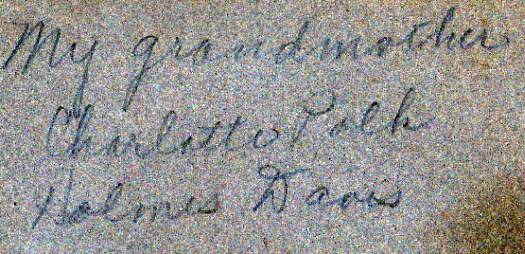 My grandmother
Charlotte Polk
Holmes Davis